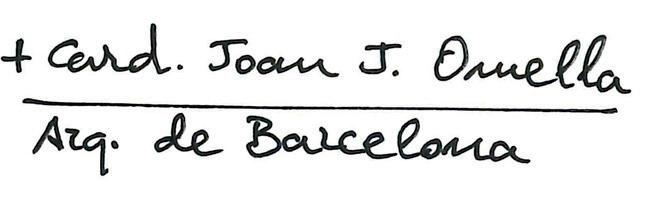 + Card. Joan J. Omella
Arq. de Barcelona